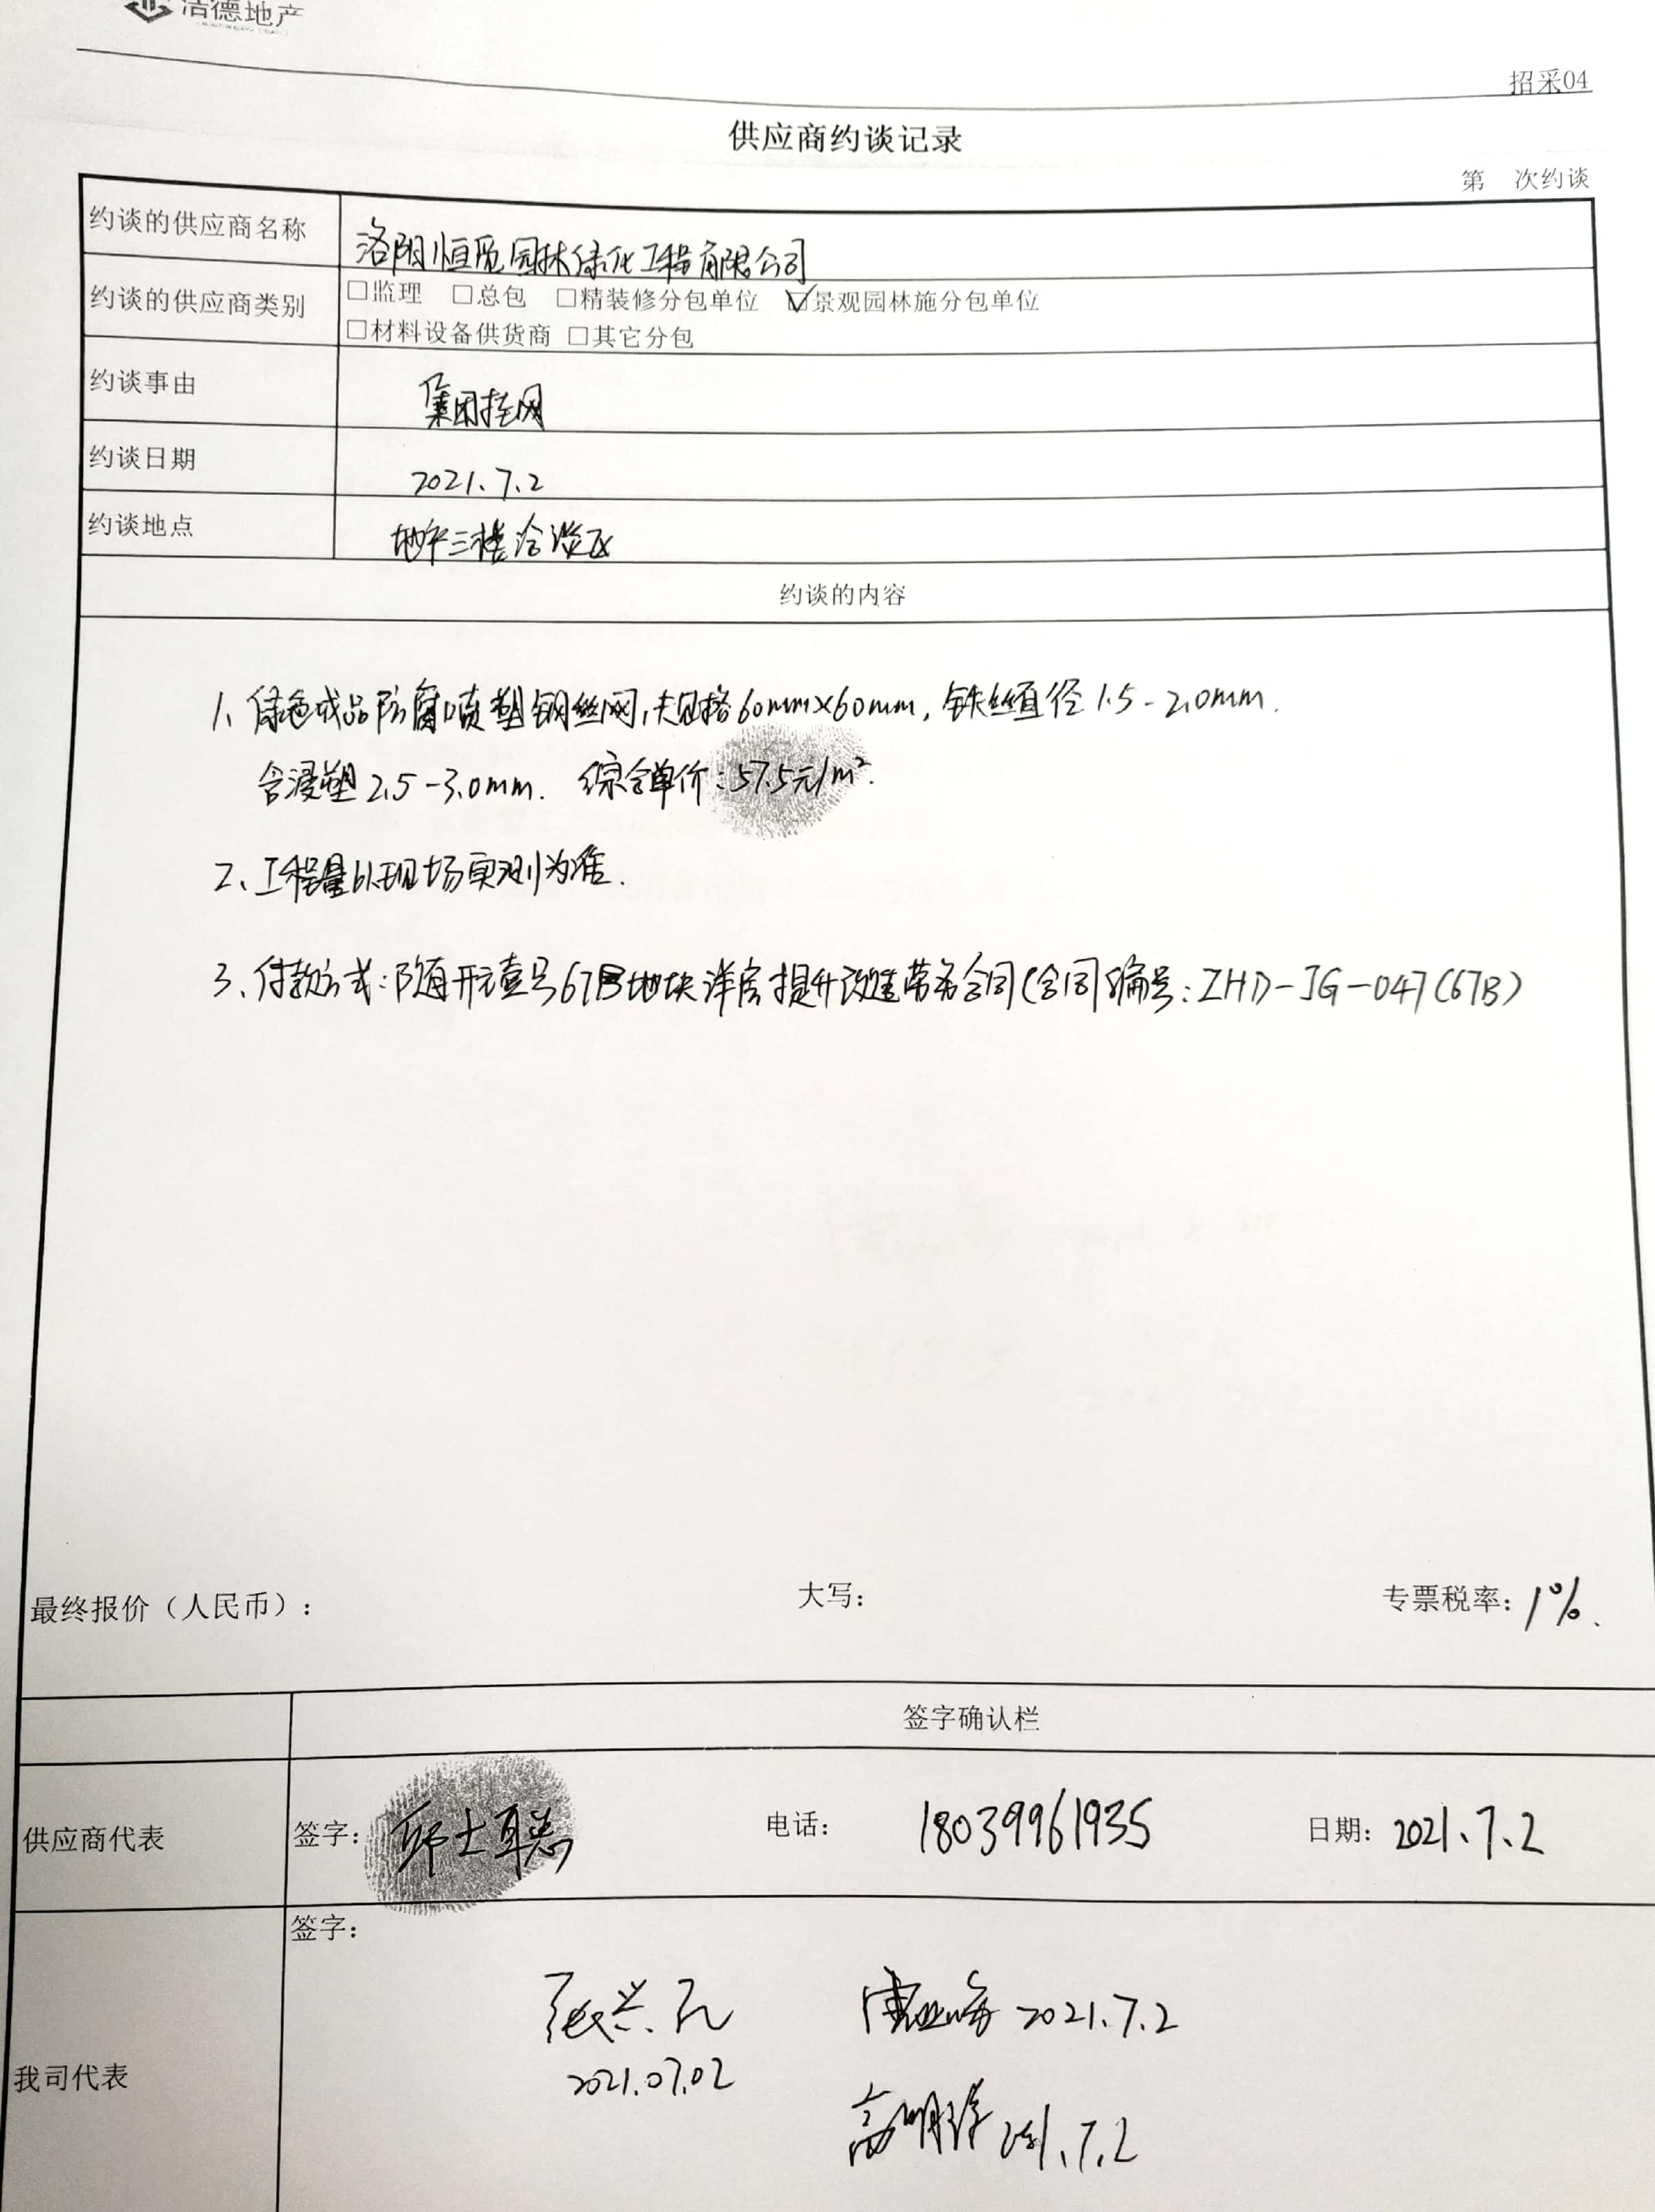 洁德地产
招采04
供应商约谈记录
第 次约谈
约谈的供应商名称 洛阳恒觅园林绿化工程有限公司
约谈的供应商类别 □监理 □总包 □精装修分包单位 ☑景观园林施分包单位
□材料设备供货商 □其它分包
约谈事由 集团挂网
约谈日期 2021.7.2
约谈地点 地产三楼洽谈区
约谈的内容
1、绿色成品防腐喷塑钢丝网,规格60mm×60mm,铁丝直径1.5-2.0mm.
含浸塑2.5-3.0mm. 综合单价:57.5元/m².
2、工程量以现场实测为准.
3、付款方式:随开元壹号67B地块洋房提升改造劳务合同(合同编号:ZHD-JG-047(67B)
最终报价(人民币): 大写: 专票税率:1%.
签字确认栏
供应商代表 签字: 士聪 电话: 18039961935 日期: 2021.7.2
签字:
张兴 2021.7.2
我司代表 2021.07.02
高明 2021.7.2